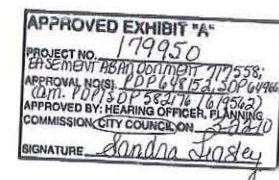 APPROVED EXHIBIT "A"
PROJECT NO. 179950
EASEMENT ABANDONMENT 717558;
APPROVAL NO(S). PDP 648152, SDP 644966
(am. PDP/SDP 582176 (619562)
APPROVED BY: HEARING OFFICER, PLANNING
COMMISSION, CITY COUNCIL ON
SIGNATURE Sandra Linsley